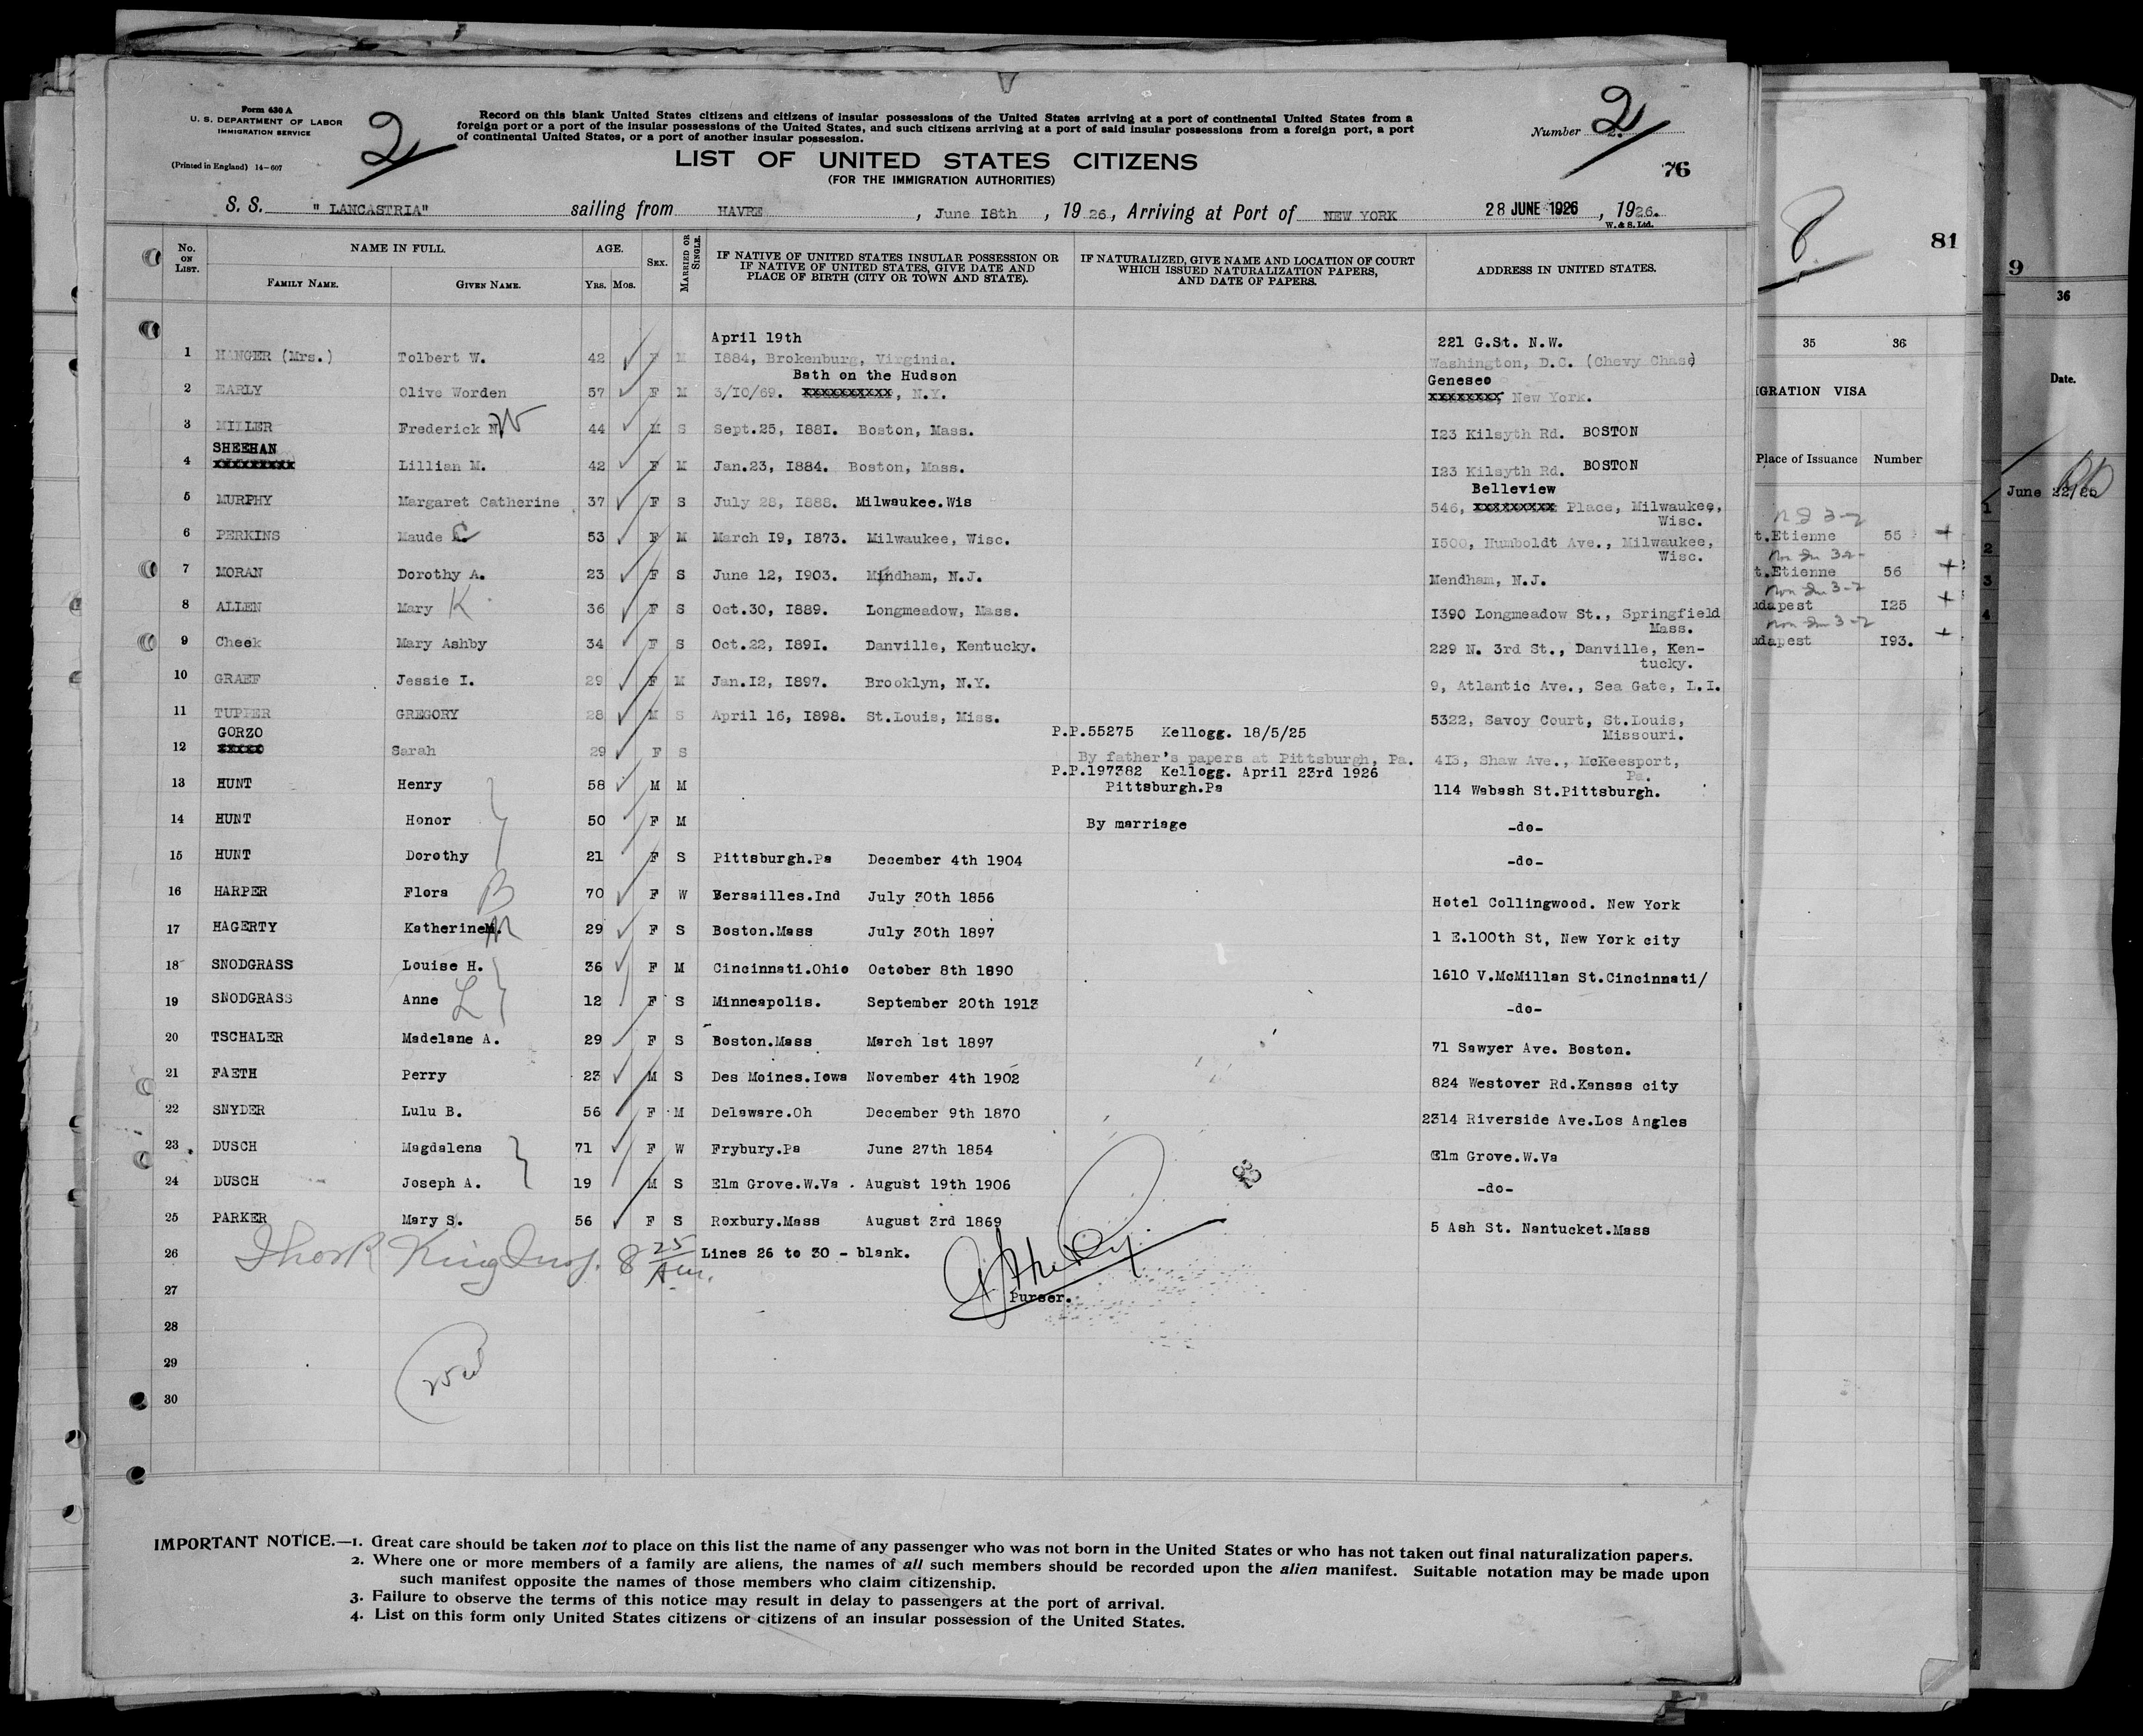 Form 630 A
U. S. DEPARTMENT OF LABOR
IMMIGRATION SERVICE
(Printed in England) 14-607
2
Record on this blank United States citizens and citizens of insular possessions of the United States arriving at a port of continental United States from a
foreign port or a port of the insular possessions of the United States, and such citizens arriving at a port of said insular possessions from a foreign port, a port
of continental United States, or a port of another insular possession.
Number 2
76
LIST OF UNITED STATES CITIZENS
(FOR THE IMMIGRATION AUTHORITIES)
S. S. " LANCASTRIA" sailing from HAVRE, June I8th, 1926, Arriving at Port of NEW YORK 28 JUNE 1926, 1926.
W. & S. Ltd.
No. ON LIST. NAME IN FULL. FAMILY NAME. GIVEN NAME. AGE. YRS. MOS. SEX. MARRIED OR SINGLE.
IF NATIVE OF UNITED STATES INSULAR POSSESSION OR
IF NATIVE OF UNITED STATES, GIVE DATE AND
PLACE OF BIRTH (CITY OR TOWN AND STATE).
IF NATURALIZED, GIVE NAME AND LOCATION OF COURT
WHICH ISSUED NATURALIZATION PAPERS,
AND DATE OF PAPERS.
ADDRESS IN UNITED STATES.
April 19th 221 G.St. N.W.
1 HANGER (Mrs.) Tolbert W. 42 F M I884, Brokenburg, Virginia. Washington, D.C. (Chevy Chase)
Bath on the Hudson Geneseo
2 EARLY Olive Worden 57 F M 3/I0/69. xxxxxxxxxx, N.Y. xxxxxxxx, New York.
3 MILLER Frederick N W 44 M S Sept.25, I88I. Boston, Mass. I23 Kilsyth Rd. BOSTON
SHEEHAN
4 xxxxxxxxx Lillian M. 42 F M Jan.23, I884. Boston, Mass. I23 Kilsyth Rd. BOSTON
Belleview
5 MURPHY Margaret Catherine 37 F S July 28, I888. Milwaukee.Wis 546, xxxxxxxxx Place, Milwaukee,
Wisc.
6 PERKINS Maude C 53 F M March I9, I873. Milwaukee, Wisc. I500, Humboldt Ave., Milwaukee,
Wisc.
7 MORAN Dorothy A. 23 F S June I2, I903. Mindham, N.J. Mendham, N.J.
8 ALLEN Mary K 36 F S Oct.30, I889. Longmeadow, Mass. I390 Longmeadow St., Springfield
Mass.
9 Cheek Mary Ashby 34 F S Oct.22, I89I. Danville, Kentucky. 229 N. 3rd St., Danville, Ken-
tucky.
10 GRAEF Jessie I. 29 F M Jan.I2, I897. Brooklyn, N.Y. 9, Atlantic Ave., Sea Gate, L.I.
11 TUPPER GREGORY 28 M S April I6, I898. St.Louis, Miss. 5322, Savoy Court, St.Louis,
Missouri.
GORZO P.P.55275 Kellogg. 18/5/25
12 xxxxx Sarah 29 F S By father's papers at Pittsburgh, Pa. 4I3, Shaw Ave., McKeesport,
Pa.
P.P.197382 Kellogg. April 23rd 1926
13 HUNT Henry 58 M M Pittsburgh.Pa 114 Wabash St.Pittsburgh.
14 HUNT Honor 50 F M By marriage -do-
15 HUNT Dorothy 21 F S Pittsburgh.Pa December 4th 1904 -do-
16 HARPER Flora B 70 F W Bersailles.Ind July 30th 1856 Hotel Collingwood. New York
17 HAGERTY Katherine M. 29 F S Boston.Mass July 30th 1897 1 E.100th St, New York city
18 SNODGRASS Louise H. 36 F M Cincinnati.Ohio October 8th 1890 1610 V.McMillan St.Cincinnati/
19 SNODGRASS Anne L 12 F S Minneapolis. September 20th 1913 -do-
20 TSCHALER Madelane A. 29 F S Boston.Mass March 1st 1897 71 Sawyer Ave. Boston.
21 FAETH Perry 23 M S Des Moines.Iowa November 4th 1902 824 Westover Rd.Kansas city
22 SNYDER Lulu B. 56 F M Delaware.Oh December 9th 1870 2314 Riverside Ave.Los Angles
23 DUSCH Magdalena 71 F W Frybury.Pa June 27th 1854 Elm Grove.W.Va
24 DUSCH Joseph A. 19 M S Elm Grove.W.Va . August 19th 1906 -do-
25 PARKER Mary S. 56 F S Roxbury.Mass August 3rd 1869 5 Ash St. Nantucket.Mass
26 King Insp. 8 25 Am. Lines 26 to 30 - blank.
27 Purser.
28
29
30
IMPORTANT NOTICE.—1. Great care should be taken not to place on this list the name of any passenger who was not born in the United States or who has not taken out final naturalization papers.
2. Where one or more members of a family are aliens, the names of all such members should be recorded upon the alien manifest. Suitable notation may be made upon
such manifest opposite the names of those members who claim citizenship.
3. Failure to observe the terms of this notice may result in delay to passengers at the port of arrival.
4. List on this form only United States citizens or citizens of an insular possession of the United States.
8
81
35 36
IGRATION VISA
Place of Issuance Number
t.Etienne 55 +
t.Etienne 56 +
udapest I25 +
udapest I93. +
9
36
Date.
June 22/26
1
2
3
4